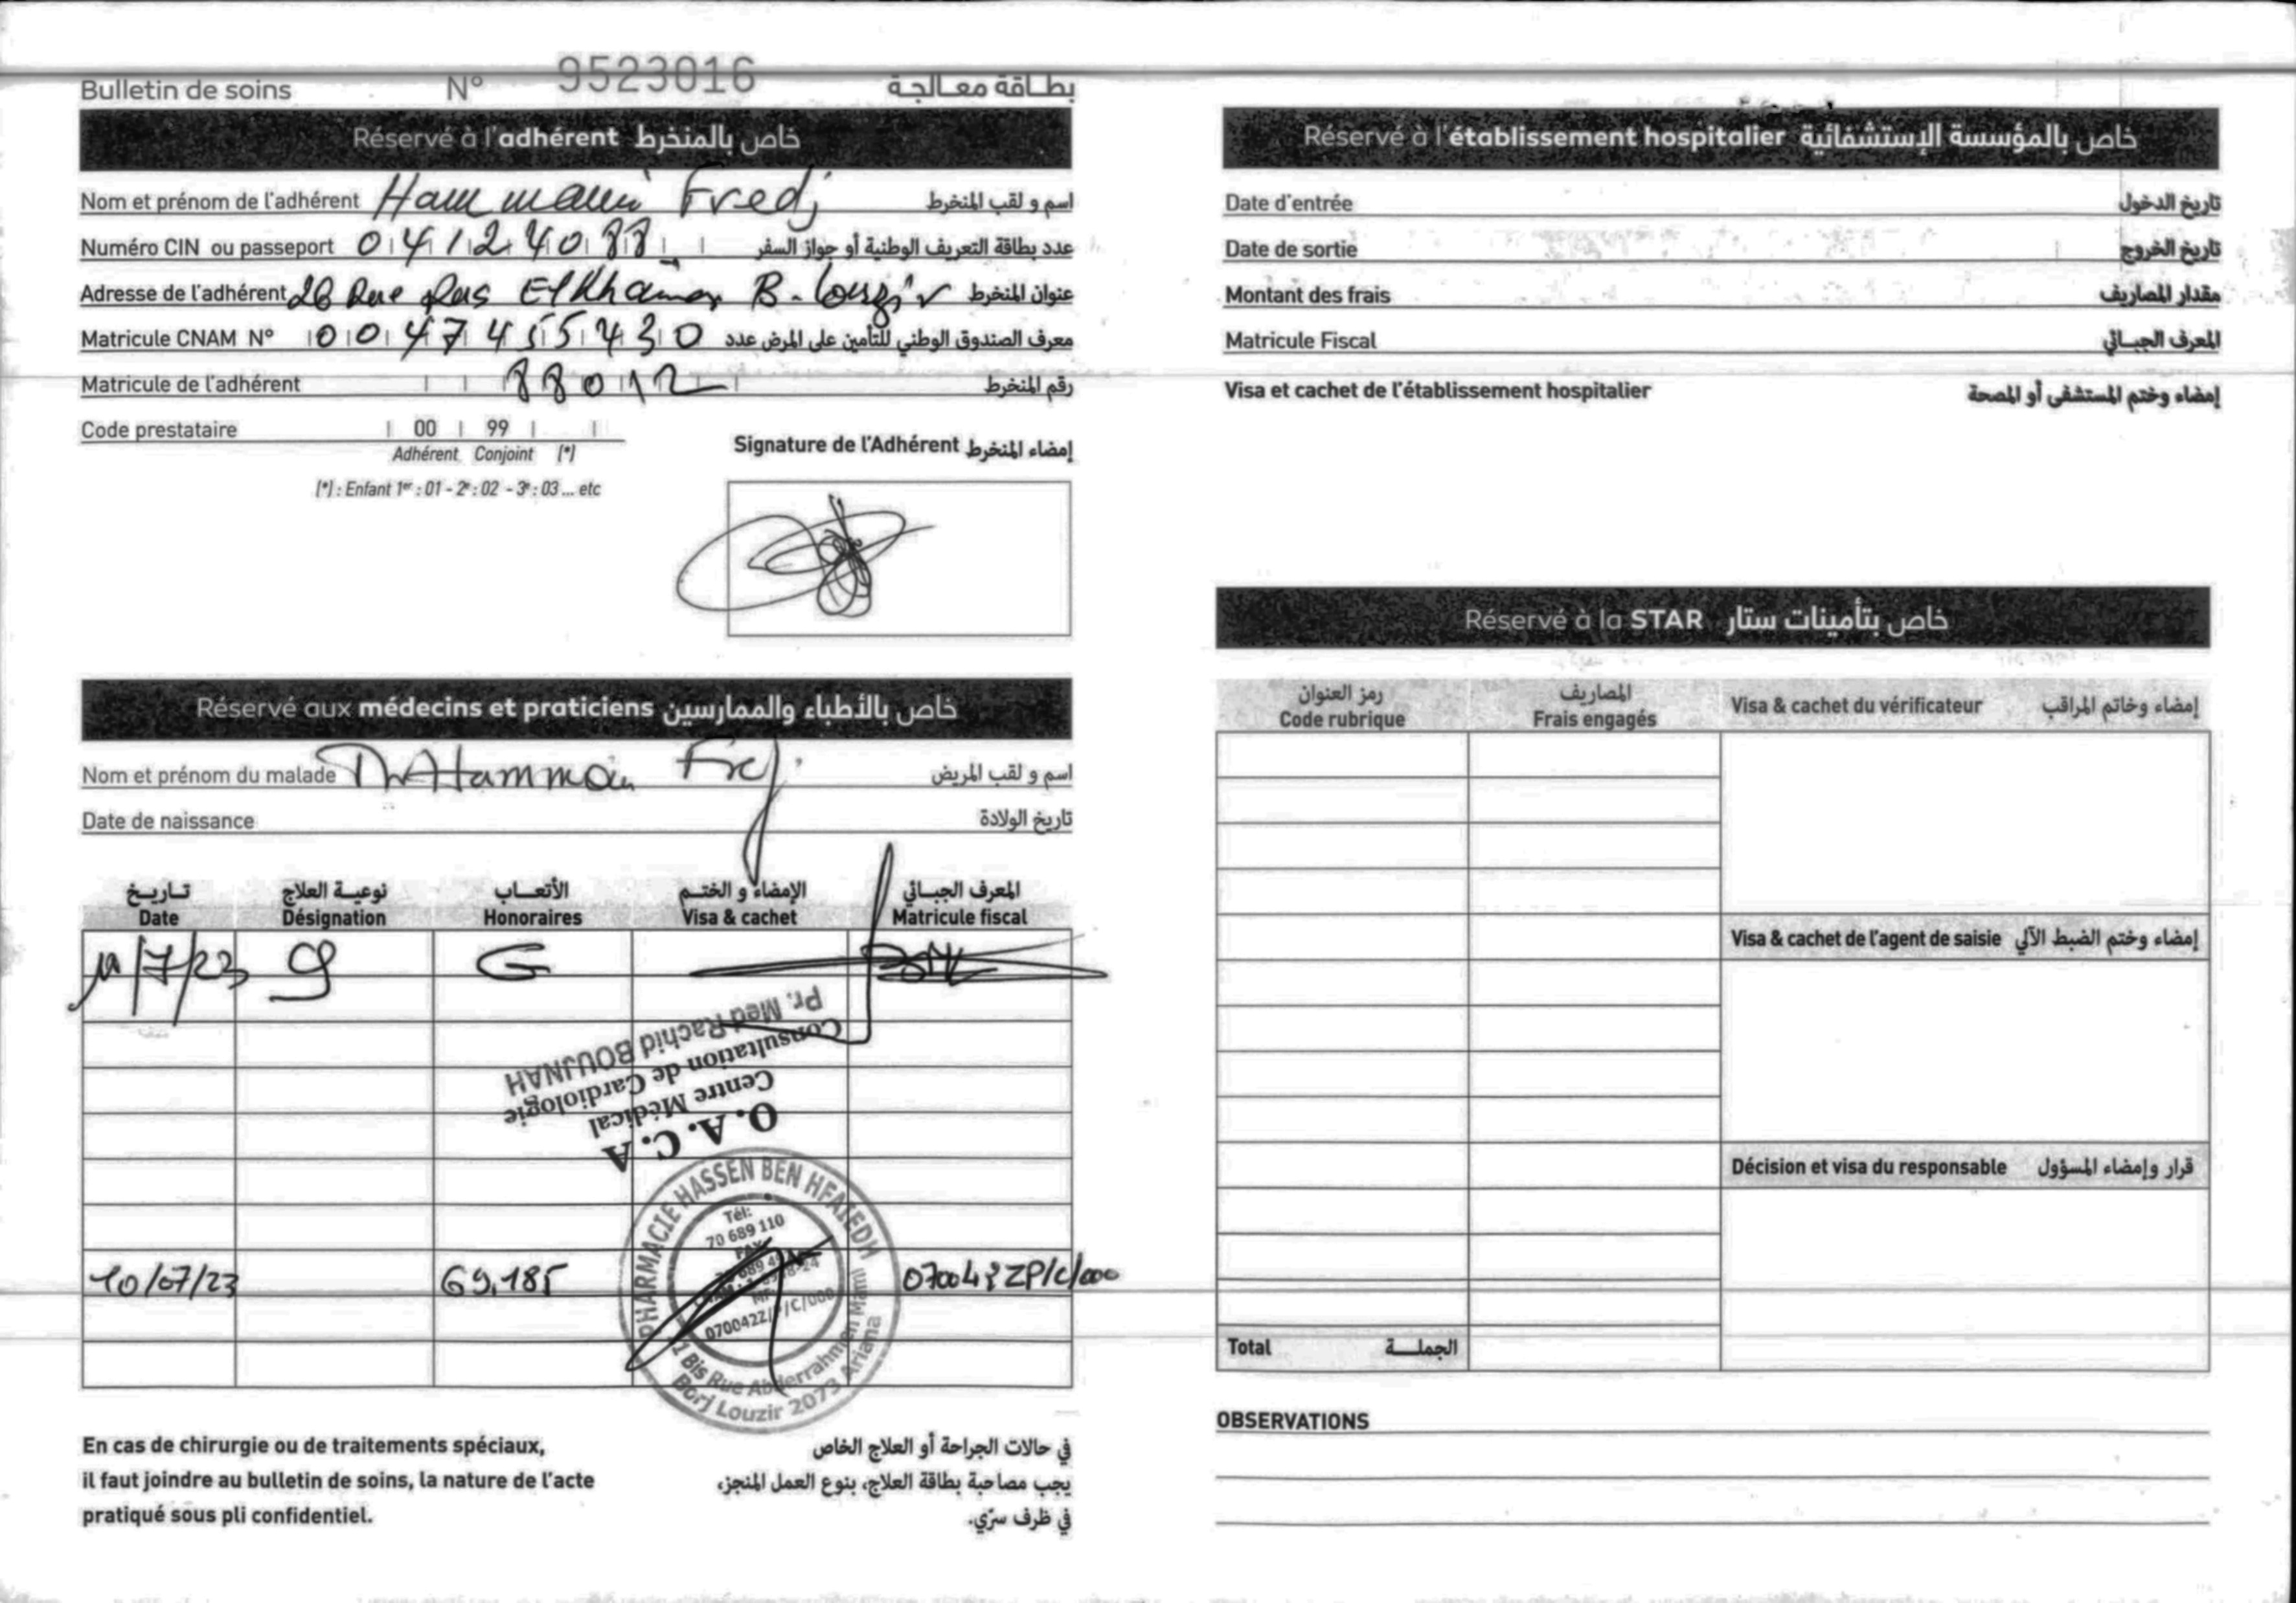 Bulletin de soins N° 9523016 بطاقة معالجة
Réservé à l'adhérent خاص بالمنخرط
Nom et prénom de l'adhérent Hammami Fredj اسم و لقب المنخرط
Numéro CIN ou passeport 04124088 عدد بطاقة التعريف الوطنية أو جواز السفر
Adresse de l'adhérent 26 Rue Ras El Khaima B. Louzir عنوان المنخرط
Matricule CNAM N° 0047455430 معرف الصندوق الوطني للتأمين على المرض عدد
Matricule de l'adhérent 88012 رقم المنخرط
Code prestataire 00 99
Adhérent Conjoint (*)
(*) : Enfant 1er : 01 - 2e : 02 - 3e : 03 ... etc
Signature de l'Adhérent إمضاء المنخرط
Réservé aux médecins et praticiens خاص بالأطباء والممارسين
Nom et prénom du malade Hammami Frej اسم و لقب المريض
Date de naissance تاريخ الولادة
تاريخ نوعية العلاج الأتعاب الإمضاء و الختم المعرف الجبائي
Date Désignation Honoraires Visa & cachet Matricule fiscal
11/7/23 G
Pr. Med Rachid BOUJNAH
Consultation de Cardiologie
Centre Médical
O.A.C.A
PHARMACIE HASSEN BEN HFAIEDH
Tél:
70 689 110
FAX
MF:
070042Z/P/C/000
1 Bis Rue Abderrahmen Mami
Borj Louzir 2073 Ariana
10/07/23 69,185 070042ZP/C/000
En cas de chirurgie ou de traitements spéciaux,
il faut joindre au bulletin de soins, la nature de l'acte
pratiqué sous pli confidentiel.
في حالات الجراحة أو العلاج الخاص
يجب مصاحبة بطاقة العلاج، بنوع العمل المنجز،
في ظرف سرّي.
Réservé à l'établissement hospitalier خاص بالمؤسسة الإستشفائية
Date d'entrée تاريخ الدخول
Date de sortie تاريخ الخروج
Montant des frais مقدار المصاريف
Matricule Fiscal المعرف الجبائي
Visa et cachet de l'établissement hospitalier إمضاء وختم المستشفى أو المصحة
Réservé à la STAR خاص بتأمينات ستار
رمز العنوان المصاريف
Code rubrique Frais engagés Visa & cachet du vérificateur إمضاء وخاتم المراقب
Visa & cachet de l'agent de saisie إمضاء وختم الضبط الآلي
Décision et visa du responsable قرار وإمضاء المسؤول
Total الجملة
OBSERVATIONS